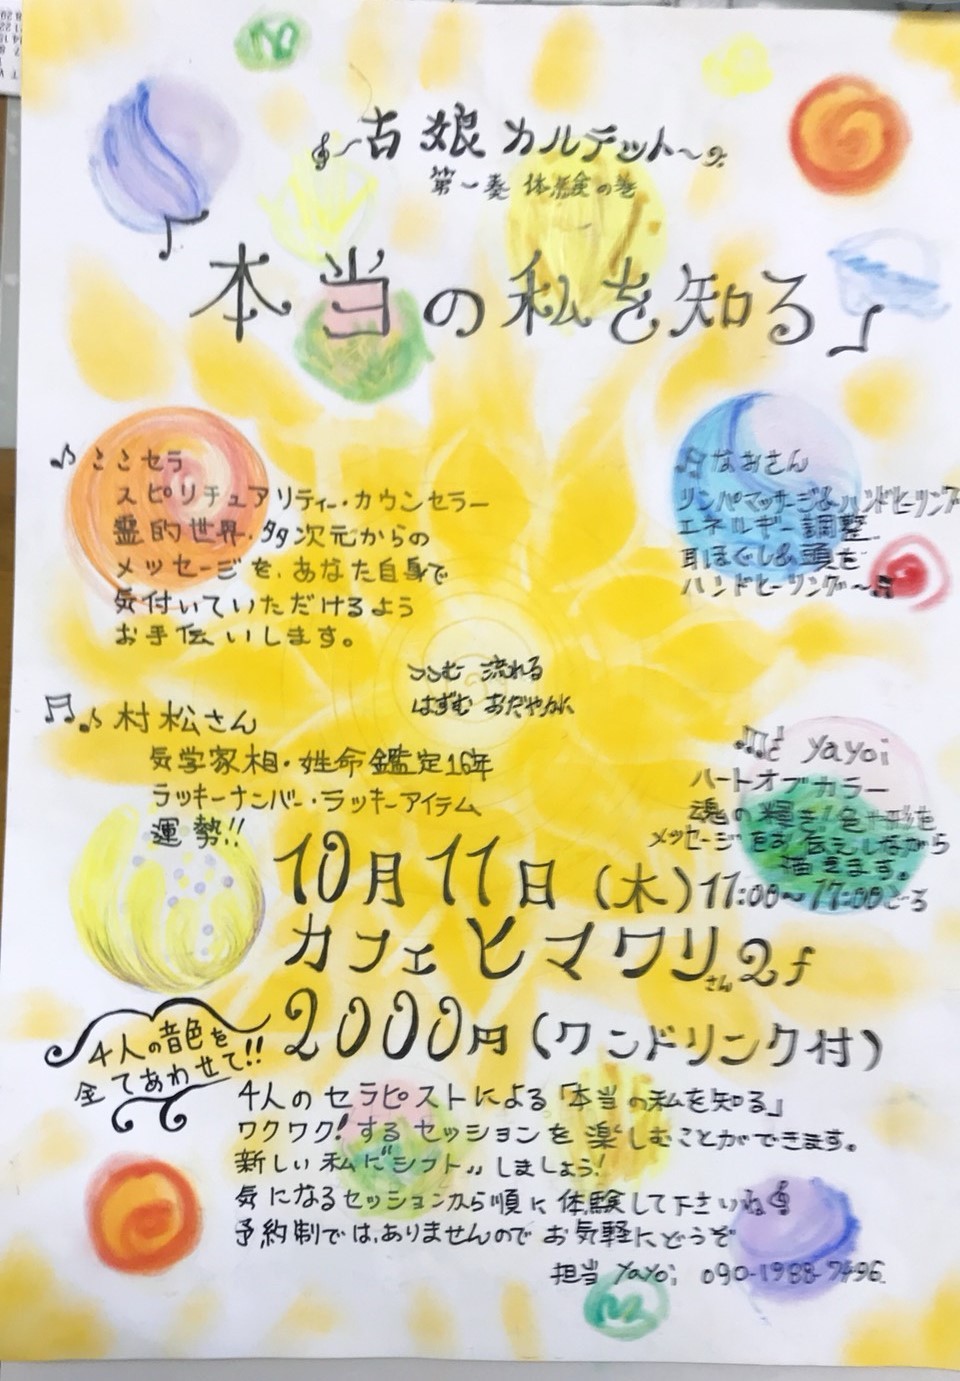 ～古娘カルテット～
第一奏 体験の巻
「本当の私を知る」
ここセラ
スピリチュアリティー・カウンセラー
霊的世界・多次元からの
メッセージを、あなた自身で
気付いていただけるよう
お手伝いします。
なおさん
リンパマッサージ&ハンドヒーリング
エネルギー調整
耳ほぐし&頭を
ハンドヒーリング～
つつむ 流れる
はずむ おだやかに
村松さん
気学家相・姓命鑑定16年
ラッキーナンバー・ラッキーアイテム
運勢!!
yayoi
ハートオブカラー
魂の輝きを色+形を
メッセージをお伝えしながら
描きます。
10月11日(木)11:00～17:00ごろ
カフェヒマワリさん2f
2000円(ワンドリンク付)
4人の音色を
全てあわせて!!
4人のセラピストによる「本当の私を知る」
ワクワク!するセッションを楽しむことができます。
新しい私に"シフト"しましょう!
気になるセッションから順に体験して下さいね
予約制では、ありませんのでお気軽にどうぞ
担当 yayoi 090-1988-7496